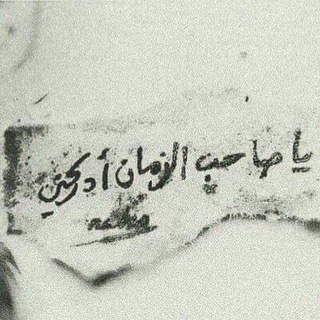 يا صاحب الزمان أدركني